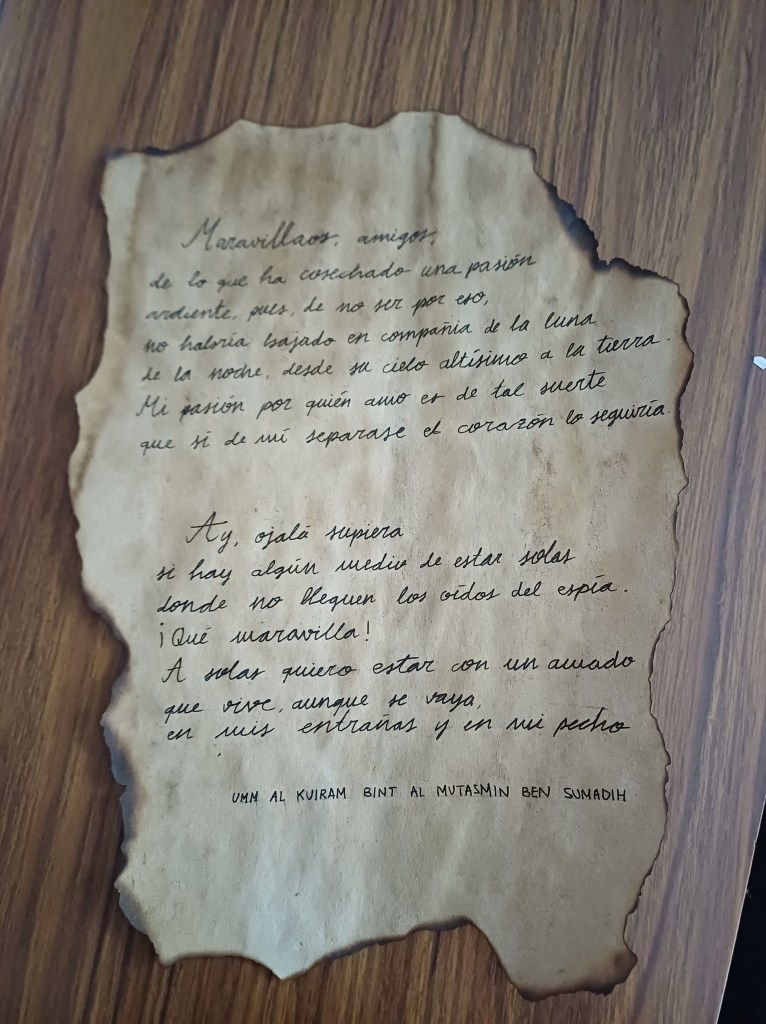 Maravillaos, amigos,
de lo que ha cosechado una pasión
ardiente, pues, de no ser por eso,
no habría bajado en compañia de la luna
de la noche, desde su cielo altísimo a la tierra.
Mi pasión por quién amo es de tal suerte
que si de mí separase el corazón lo seguiría.
Ay, ojalá supiera
si hay algún medio de estar solas
donde no lleguen los oídos del espía.
¡Qué maravilla!
A solas quiero estar con un amado
que vive, aunque se vaya,
en mis entrañas y en mi pecho
UMM AL KUIRAM BINT AL MUTASMIN BEN SUMADIH